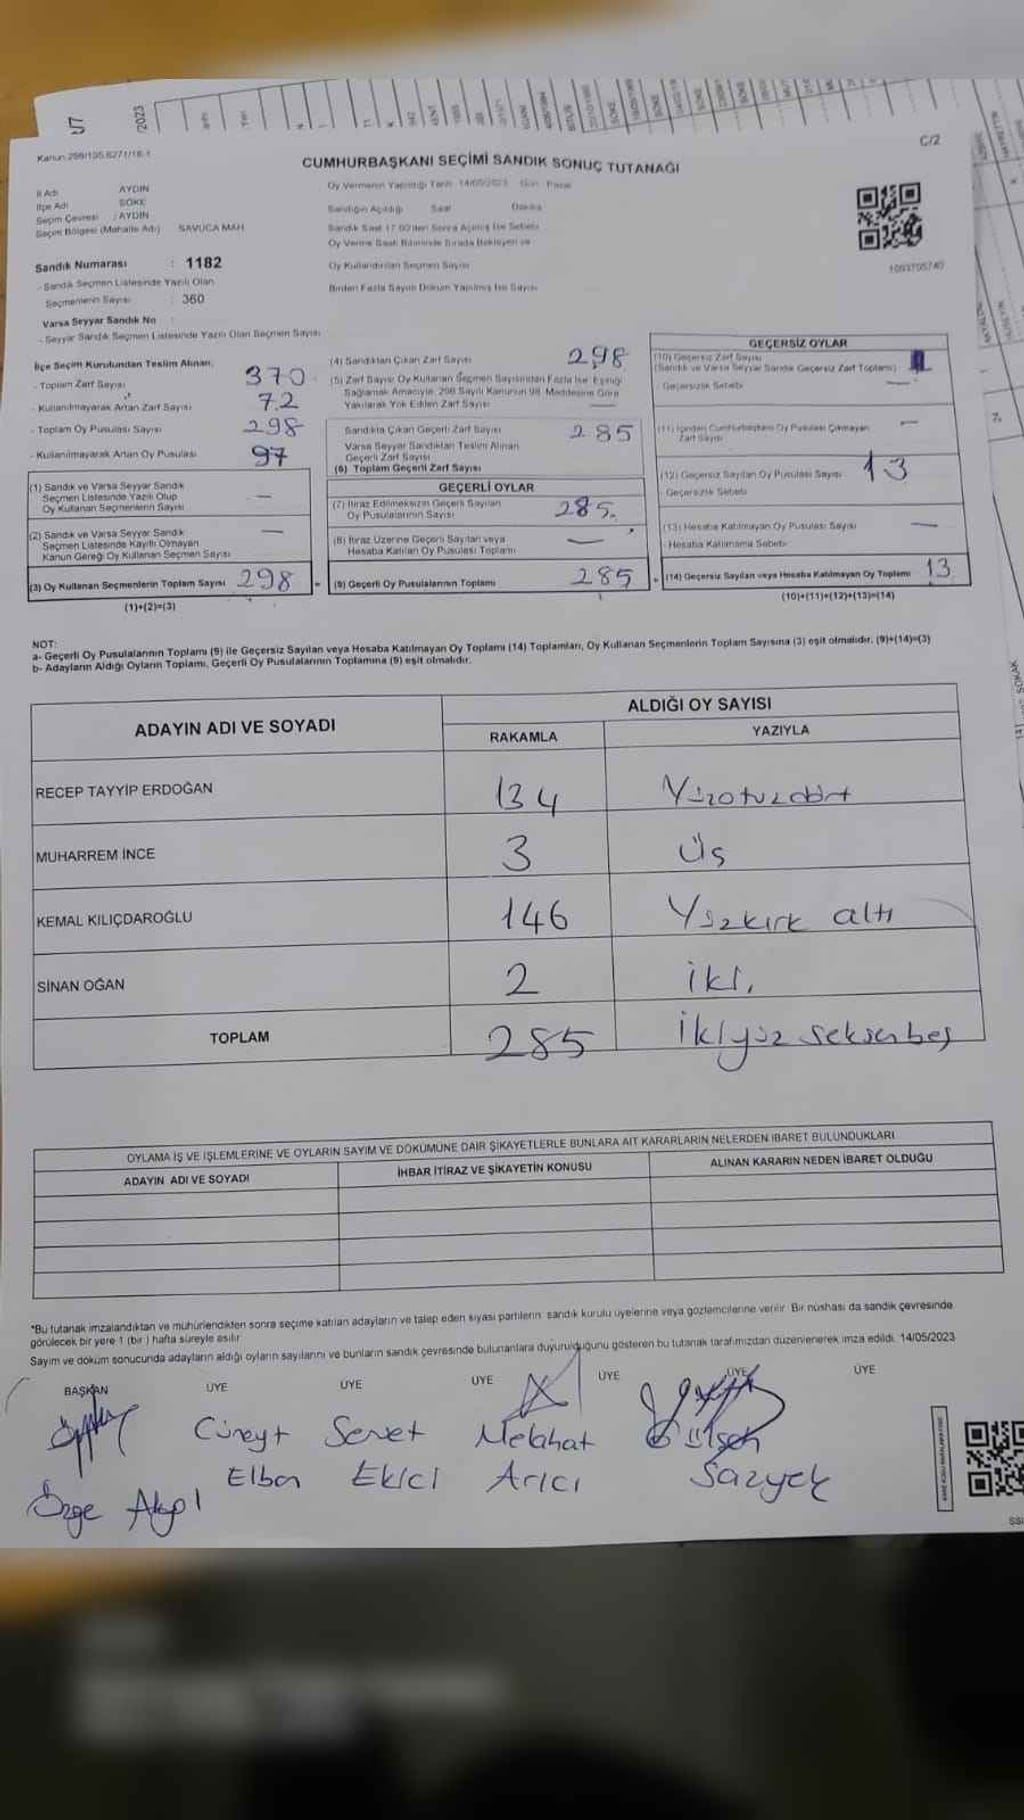 C/2
Kanun:298/105,6271/18-1
CUMHURBAŞKANI SEÇİMİ SANDIK SONUÇ TUTANAĞI
İl Adı AYDIN
İlçe Adı SÖKE
Seçim Çevresi : AYDIN
Seçim Bölgesi (Mahalle Adı) SAVUCA MAH.
Oy Vermenin Yapıldığı Tarih 14/05/2023 Gün Pazar
Sandığın Açıldığı Saat Dakika
Sandık Saat 17.00'den Sonra Açılmış İse Sebebi
Oy Verme Saati Bitiminde Sırada Bekleyen ve
Oy Kullandırılan Seçmen Sayısı
Birden Fazla Sayım Döküm Yapılmış İse Sayısı
Sandık Numarası : 1182
- Sandık Seçmen Listesinde Yazılı Olan
Seçmenlerin Sayısı : 360
Varsa Seyyar Sandık No :
- Seyyar Sandık Seçmen Listesinde Yazılı Olan Seçmen Sayısı
İlçe Seçim Kurulundan Teslim Alınan;
- Toplam Zarf Sayısı 370
- Kullanılmayarak Artan Zarf Sayısı 72
- Toplam Oy Pusulası Sayısı 298
- Kullanılmayarak Artan Oy Pusulası 97
(1) Sandık ve Varsa Seyyar Sandık
Seçmen Listesinde Yazılı Olup
Oy Kullanan Seçmenlerin Sayısı —
(2) Sandık ve Varsa Seyyar Sandık
Seçmen Listesinde Kayıtlı Olmayan
Kanun Gereği Oy Kullanan Seçmen Sayısı —
(3) Oy Kullanan Seçmenlerin Toplam Sayısı 298
(1)+(2)=(3)
(4) Sandıktan Çıkan Zarf Sayısı 298
(5) Zarf Sayısı Oy Kullanan Seçmen Sayısından Fazla İse Eşitliği
Sağlamak Amacıyla, 298 Sayılı Kanunun 98. Maddesine Göre
Yakılarak Yok Edilen Zarf Sayısı —
Sandıkta Çıkan Geçerli Zarf Sayısı 285
Varsa Seyyar Sandıktan Teslim Alınan
Geçerli Zarf Sayısı
(6) Toplam Geçerli Zarf Sayısı
GEÇERLİ OYLAR
(7) İtiraz Edilmeksizin Geçerli Sayılan
Oy Pusulalarının Sayısı 285.
(8) İtiraz Üzerine Geçerli Sayılan veya
Hesaba Katılan Oy Pusulası Toplamı —
(9) Geçerli Oy Pusulalarının Toplamı 285
GEÇERSİZ OYLAR
(10) Geçersiz Zarf Sayısı
(Sandık ve Varsa Seyyar Sandık Geçersiz Zarf Toplamı)
- Geçersizlik Sebebi —
(11) İçinden Cumhurbaşkanı Oy Pusulası Çıkmayan
Zarf Sayısı —
(12) Geçersiz Sayılan Oy Pusulası Sayısı 13
- Geçersizlik Sebebi
(13) Hesaba Katılmayan Oy Pusulası Sayısı —
- Hesaba Katılmama Sebebi
(14) Geçersiz Sayılan veya Hesaba Katılmayan Oy Toplamı 13
(10)+(11)+(12)+(13)=(14)
NOT:
a- Geçerli Oy Pusulalarının Toplamı (9) ile Geçersiz Sayılan veya Hesaba Katılmayan Oy Toplamı (14) Toplamları, Oy Kullanan Seçmenlerin Toplam Sayısına (3) eşit olmalıdır. (9)+(14)=(3)
b- Adayların Aldığı Oyların Toplamı, Geçerli Oy Pusulalarının Toplamına (9) eşit olmalıdır.
ADAYIN ADI VE SOYADI ALDIĞI OY SAYISI
RAKAMLA YAZIYLA
RECEP TAYYİP ERDOĞAN 134 Yüzotuzdört
MUHARREM İNCE 3 Üç
KEMAL KILIÇDAROĞLU 146 Yüzkırk altı
SİNAN OĞAN 2 İki.
TOPLAM 285 İkiyüz seksenbeş
OYLAMA İŞ VE İŞLEMLERİNE VE OYLARIN SAYIM VE DÖKÜMÜNE DAİR ŞİKAYETLERLE BUNLARA AİT KARARLARIN NELERDEN İBARET BULUNDUKLARI
ADAYIN ADI VE SOYADI İHBAR İTİRAZ VE ŞİKAYETİN KONUSU ALINAN KARARIN NEDEN İBARET OLDUĞU
*Bu tutanak imzalandıktan ve mühürlendikten sonra seçime katılan adayların ve talep eden siyasi partilerin sandık kurulu üyelerine veya gözlemcilerine verilir. Bir nüshası da sandık çevresinde
görülecek bir yere 1 (bir) hafta süreyle asılır.
Sayım ve döküm sonucunda adayların aldığı oyların sayılarını ve bunların sandık çevresinde bulunanlara duyurulduğunu gösteren bu tutanak tarafımızdan düzenlenerek imza edildi. 14/05/2023
BAŞKAN ÜYE ÜYE ÜYE ÜYE ÜYE ÜYE
Cüneyt Servet Melahat Gülseh
Elban Ekici Arıcı Sazyek
Özge Akpı